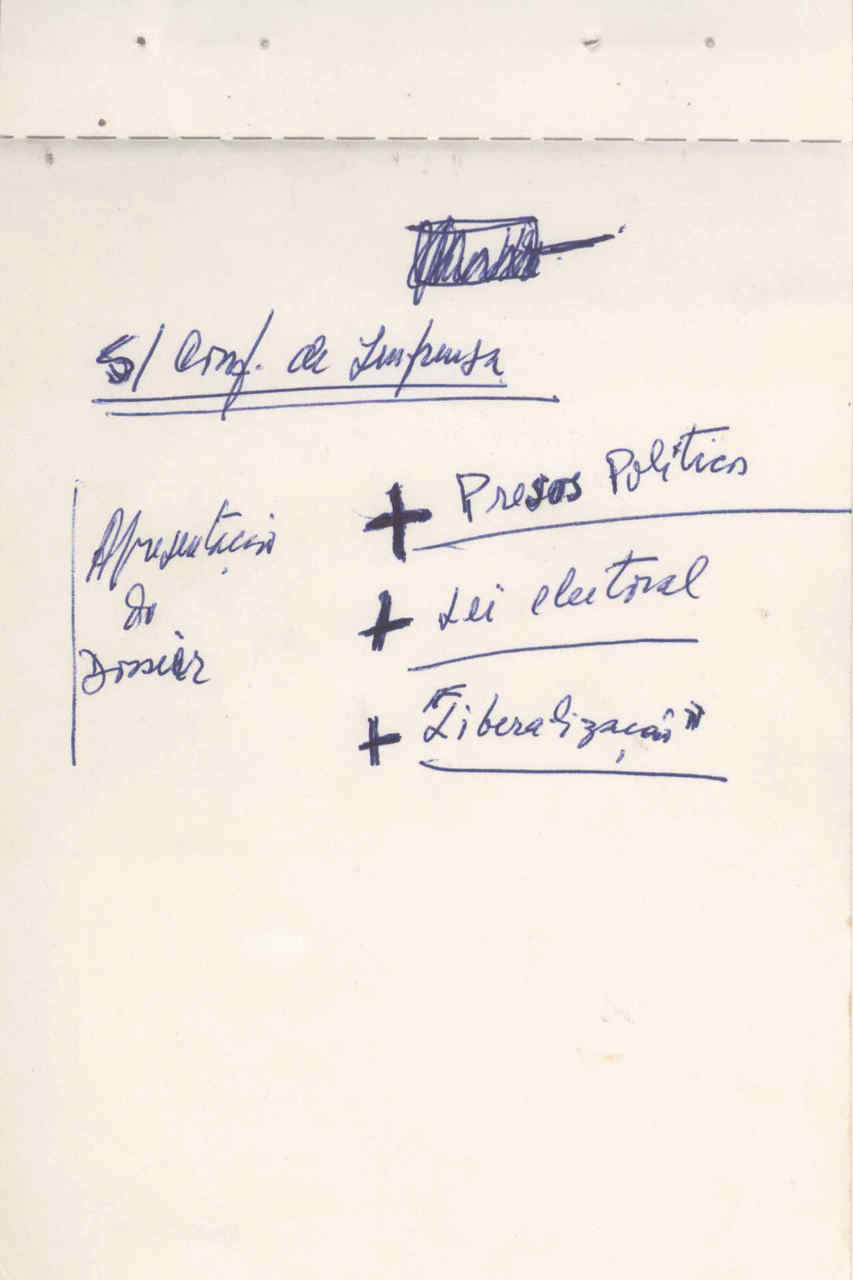 S/ Conf. de Imprensa
Apresentação
do
Dossier
+ Presos Políticos
+ Lei eleitoral
+ "Liberalização"